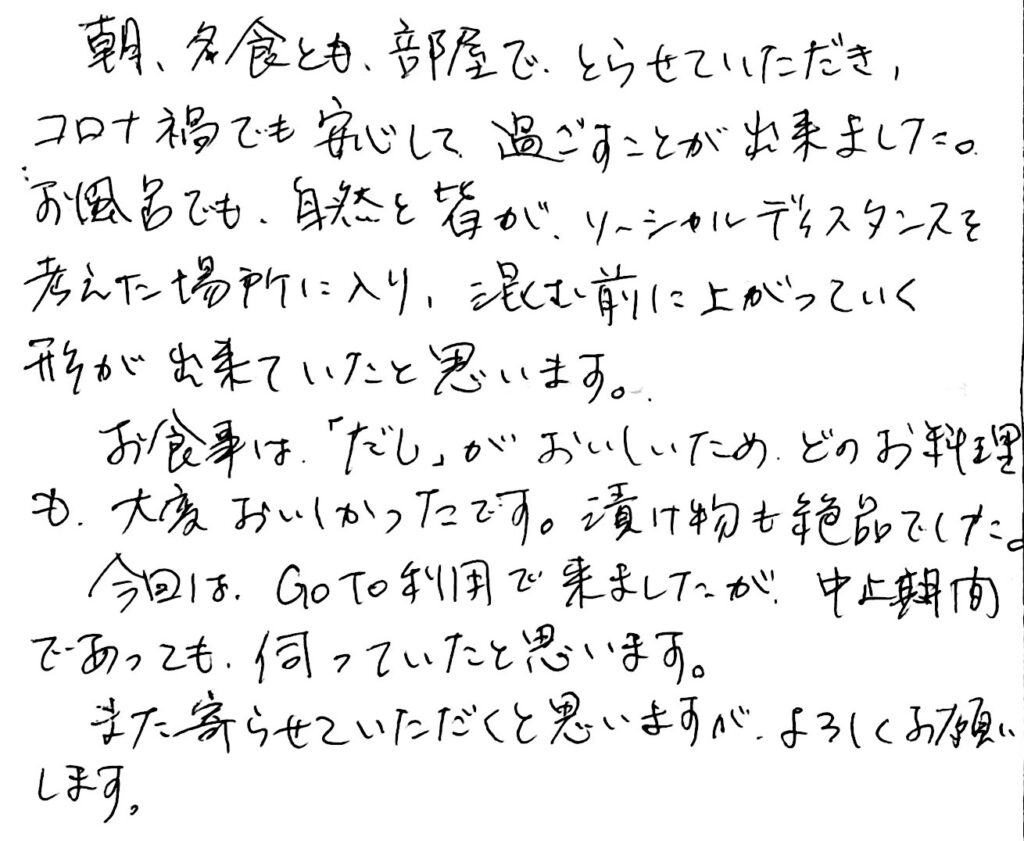 朝、夕食とも、部屋で、とらせていただき、
コロナ禍でも安心して過ごすことが出来ました。
お風呂でも、自然と皆が、ソーシャルディスタンスを
考えた場所に入り、混む前に上がっていく
形が出来ていたと思います。
お食事は、「だし」がおいしいため、どのお料理
も、大変おいしかったです。漬け物も絶品でした。
今回は、GoTo利用で来ましたが、中止期間
であっても、伺っていたと思います。
また寄らせていただくと思いますが、よろしくお願い
します。